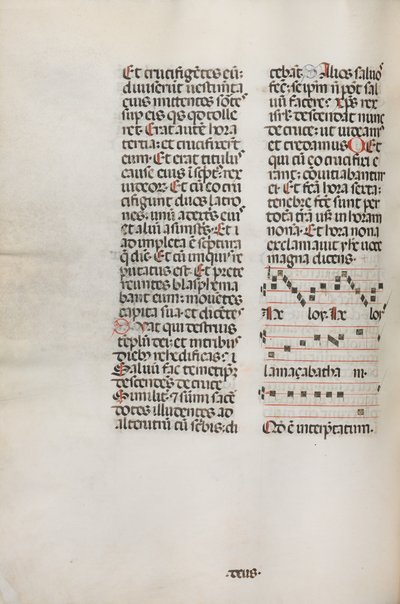 Et crucifigẽtes eũ:
diuiserũt uestimẽta
eius mittentes sortẽ
sup eis qͥs qͥd tolle
ret. Erat autẽ hora
tertia: et crucifixerũt
eum. Et erat titulꝰ
cause eius ĩscͥptꝰ: rex
iudeoꝝ. Et cũ eo cru
cifigunt duos latro
nes. unũ a dextris eiꝰ
et aliũ a sinistris. Et ĩ
adimpleta ẽ scͥptura
q̃ dic̃. Et cũ iniqͥs re
putatus est. Et prete
reuntes blasphema
bant eum: mouẽtes
capita sua: et dicẽtes
Uat qui destruis
tẽplũ dei: et in tribꝰ
diebꝫ reedificas:
Saluũ fac temetip̃m
descendens de cruce
Similit̃ ⁊ sũmi sacer
dotes illudentes ad
alterutrũ cũ scͥbis: di
cebãt. Alios saluos
fec̃: seip̃m nõ põt sal
uũ facere. Xp̃s rex
isrl̃ descendat nunc
de cruce: ut uideamꝰ
et credamus. Et
qui cũ eo crucifixi e
rant: conuitiabantur
ei. Et fc̃a hora sexta:
tenebre fc̃e sunt per
totã t̃rã usqꝫ in horam
nonã. Et hora nona
exclamauit yhc̃ uoce
magna dicens.
loy. loy
lamaçabatha ni.
Qd̓ ẽ interp̃tatum.
.deus.